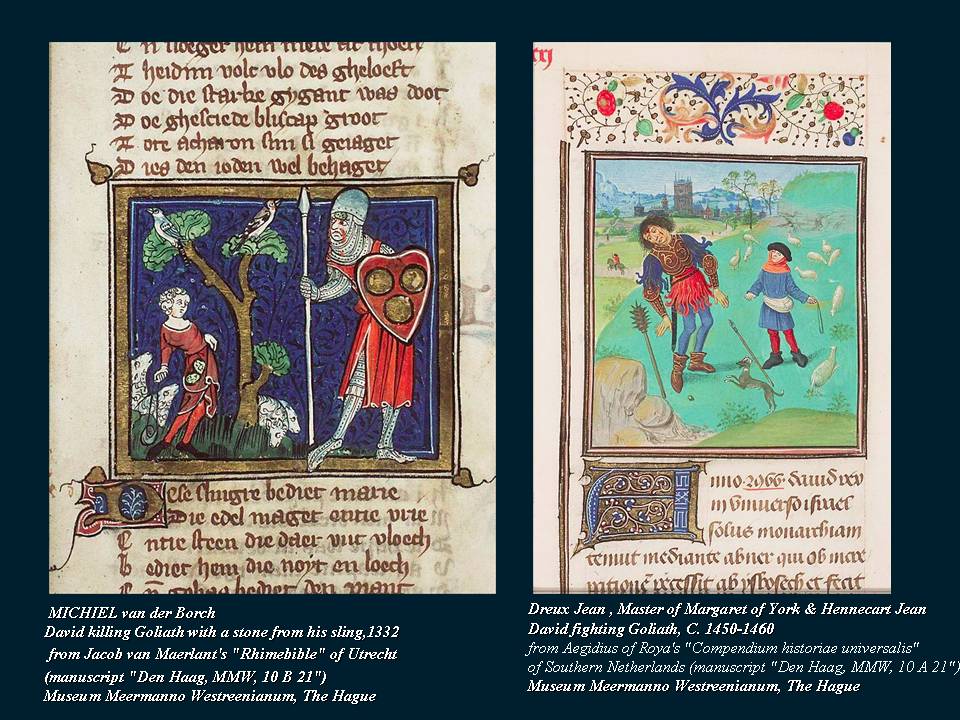 heidin volc vlo des gheloeft
D oe die starke gygant was doot
D oe ghesciede bliscap groot
A ote acharon sijn si geiaget
D ies den ioden wel behaget
Dese slingre bediet marie
Die edel maget entie vrie
E ntie steen die daer vut vloech
B ediet hem die noyt en loech
bediet den
MICHIEL van der Borch
David killing Goliath with a stone from his sling,1332
from Jacob van Maerlant's "Rhimebible" of Utrecht
(manuscript "Den Haag, MMW, 10 B 21")
Museum Meermanno Westreenianum, The Hague
xxj
Anno 2966 dauid rex
in vniuerso israel
solus monarchiam
tenuit mediante abner qui ob incre
recessit ab ysboseth et fecit
Dreux Jean , Master of Margaret of York & Hennecart Jean
David fighting Goliath, C. 1450-1460
from Aegidius of Roya's "Compendium historiae universalis"
of Southern Netherlands (manuscript "Den Haag, MMW, 10 A 21")
Museum Meermanno Westreenianum, The Hague